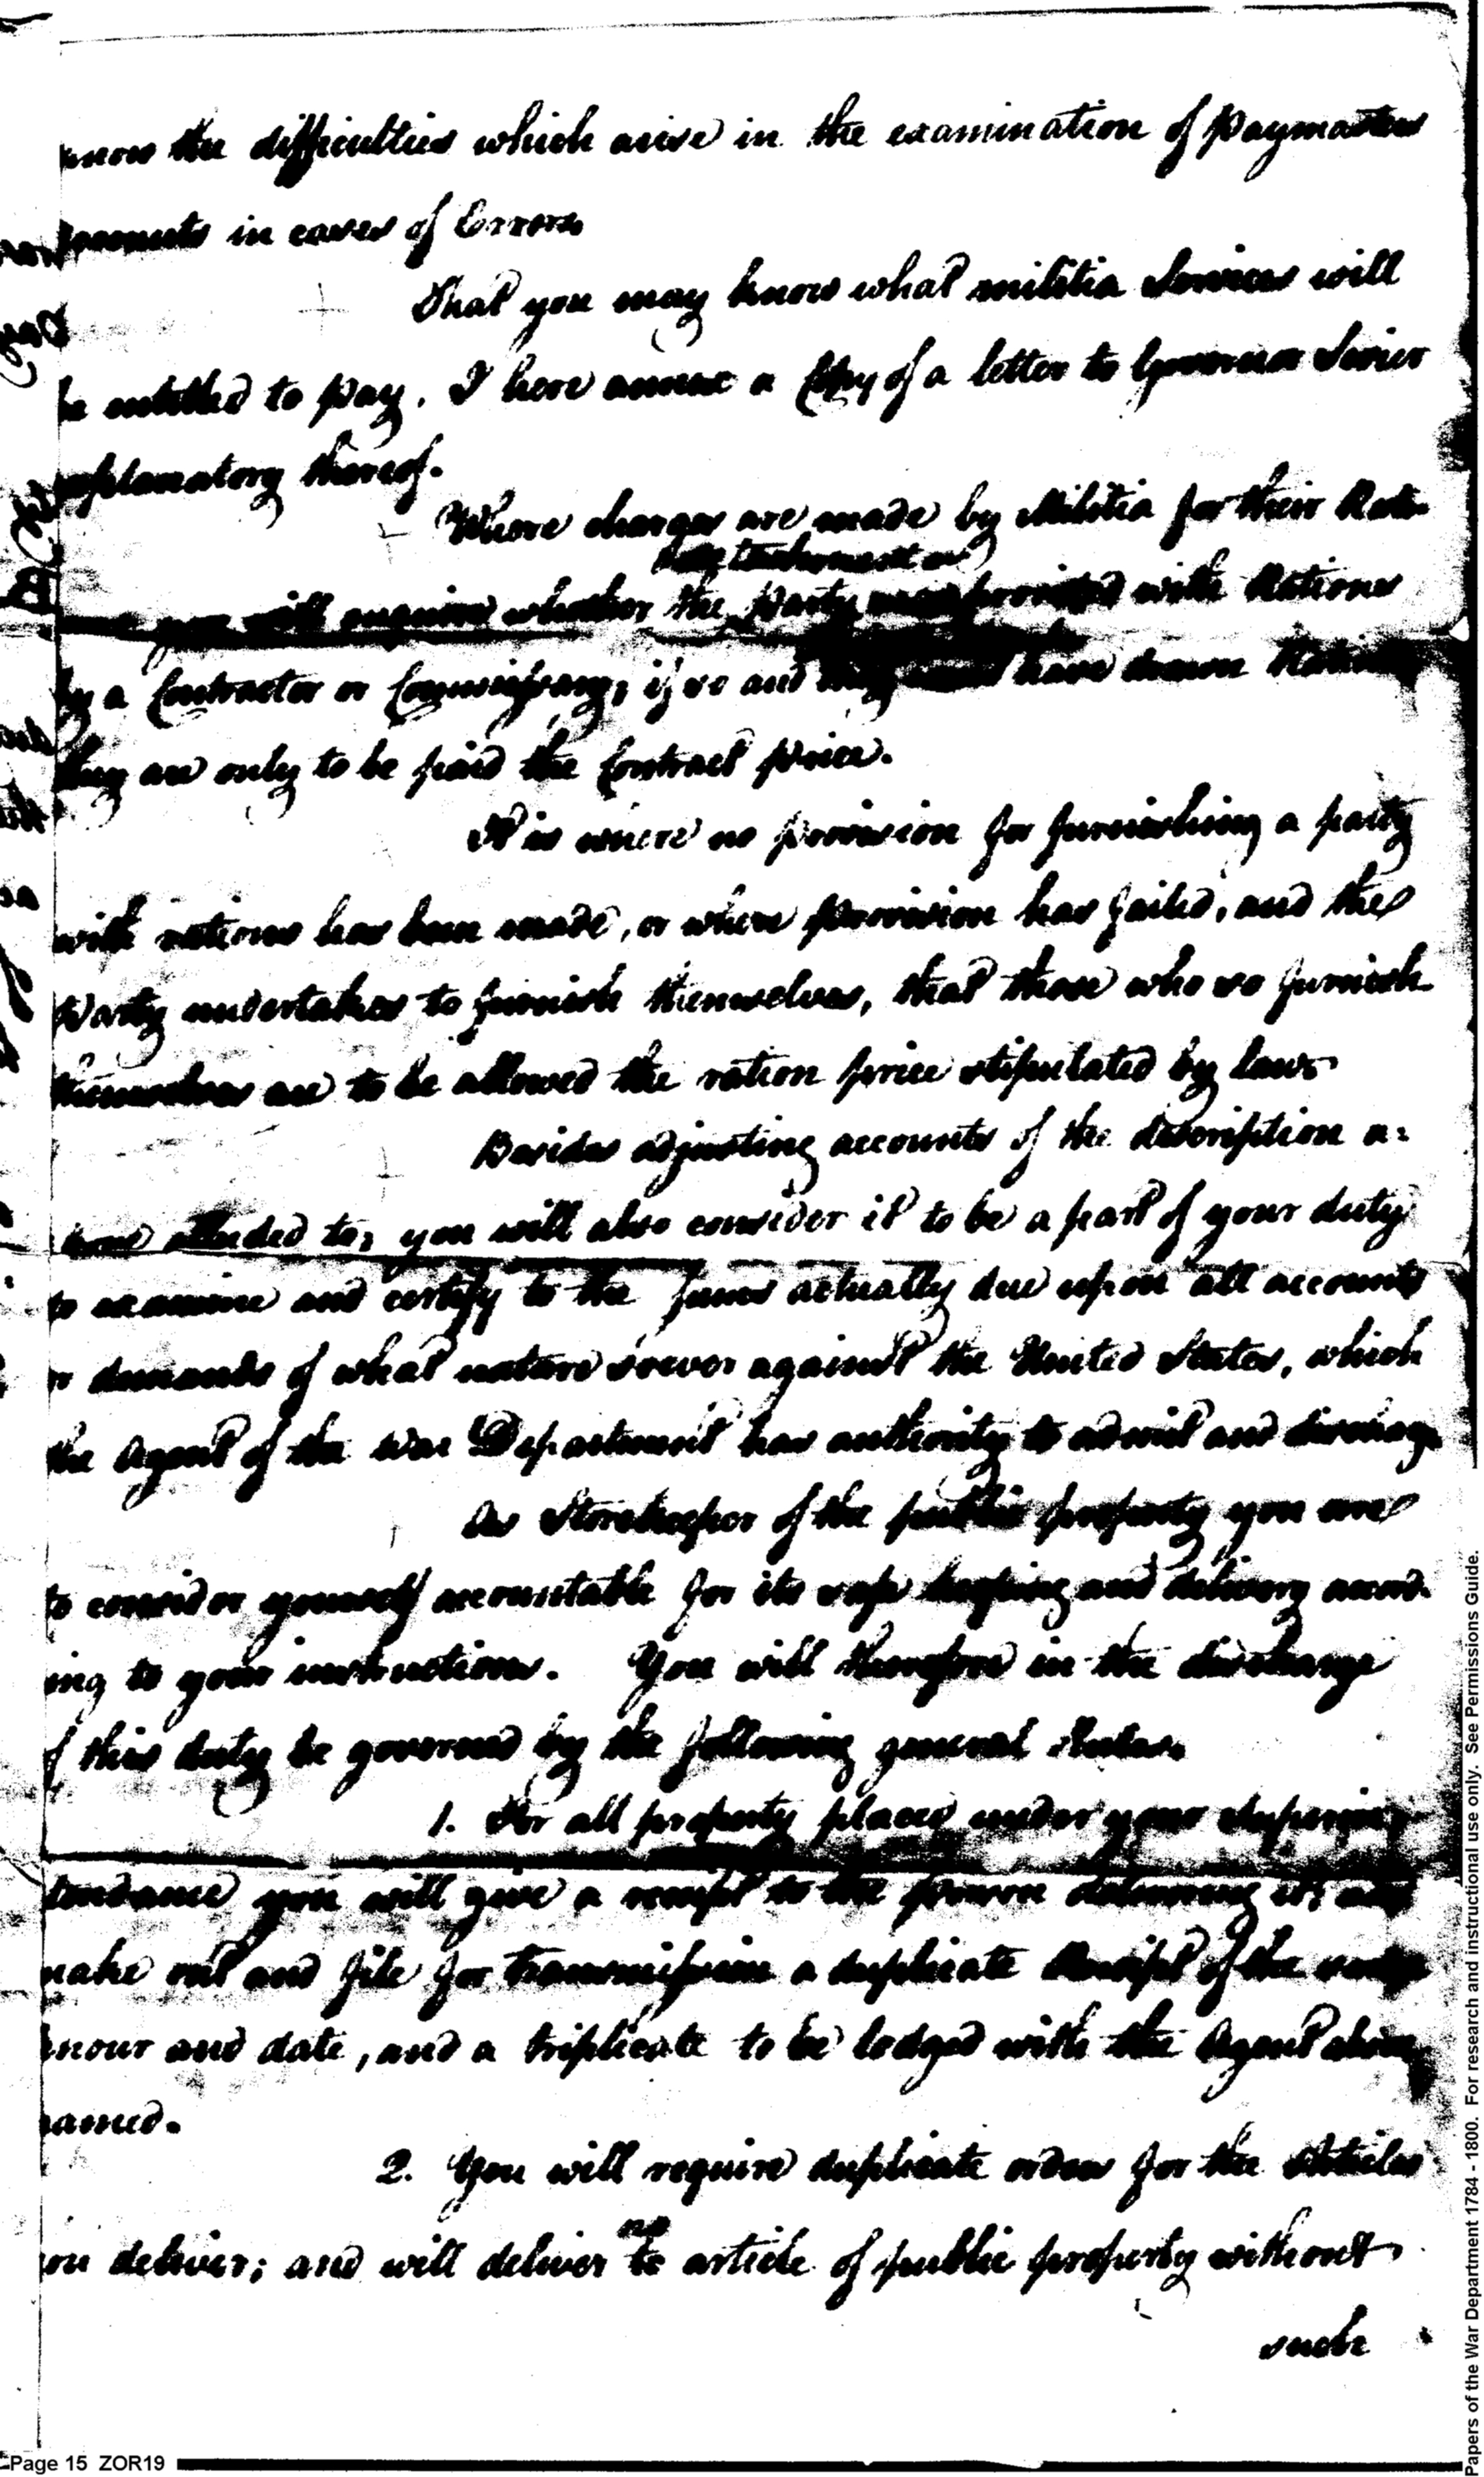 know the difficulties which arise in the examination of Paymasters
accounts in cases of Errors
That you may know what militia Services will
be entitled to pay. I here annex a Copy of a letter to Governor Sevier
explanatory thereof.
Where charges are made by Militia for their Rati-
detachment or
you will enquire whether the party was provided with Rations
by a Contractor or Commissary; if so and have drawn Rations
they are only to be paid the Contract price.
It is where no provision for furnishing a party
with rations has been made, or where provision has failed, and the
Party undertakes to furnish themselves, that those who so furnish
themselves are to be allowed the ration price stipulated by law.
Besides adjusting accounts of the description a=
bove alluded to, you will also consider it to be a part of your duty
to examine and certify to the sums actually due upon all accounts
or demands of what nature soever against the United States, which
the Agent of the War Department has authority to admit and discharge
As Storekeeper of the public property you are
to consider yourself accountable for its safe keeping and delivery accord-
ing to your instructions. You will therefore in the discharge
of this duty be governed by the following general Rules.
1. For all property placed under your Superin-
tendance you will give a receipt to the person delivering it; and
make out and file for transmission a duplicate Receipt of the same
tenour and date, and a triplicate to be lodged with the Agent above
named.
2. You will require duplicate orders for the Articles
you deliver; and will deliver no article of public property without
such
Page 15 ZOR19
Papers of the War Department 1784 - 1800. For research and instructional use only. See Permissions Guide.